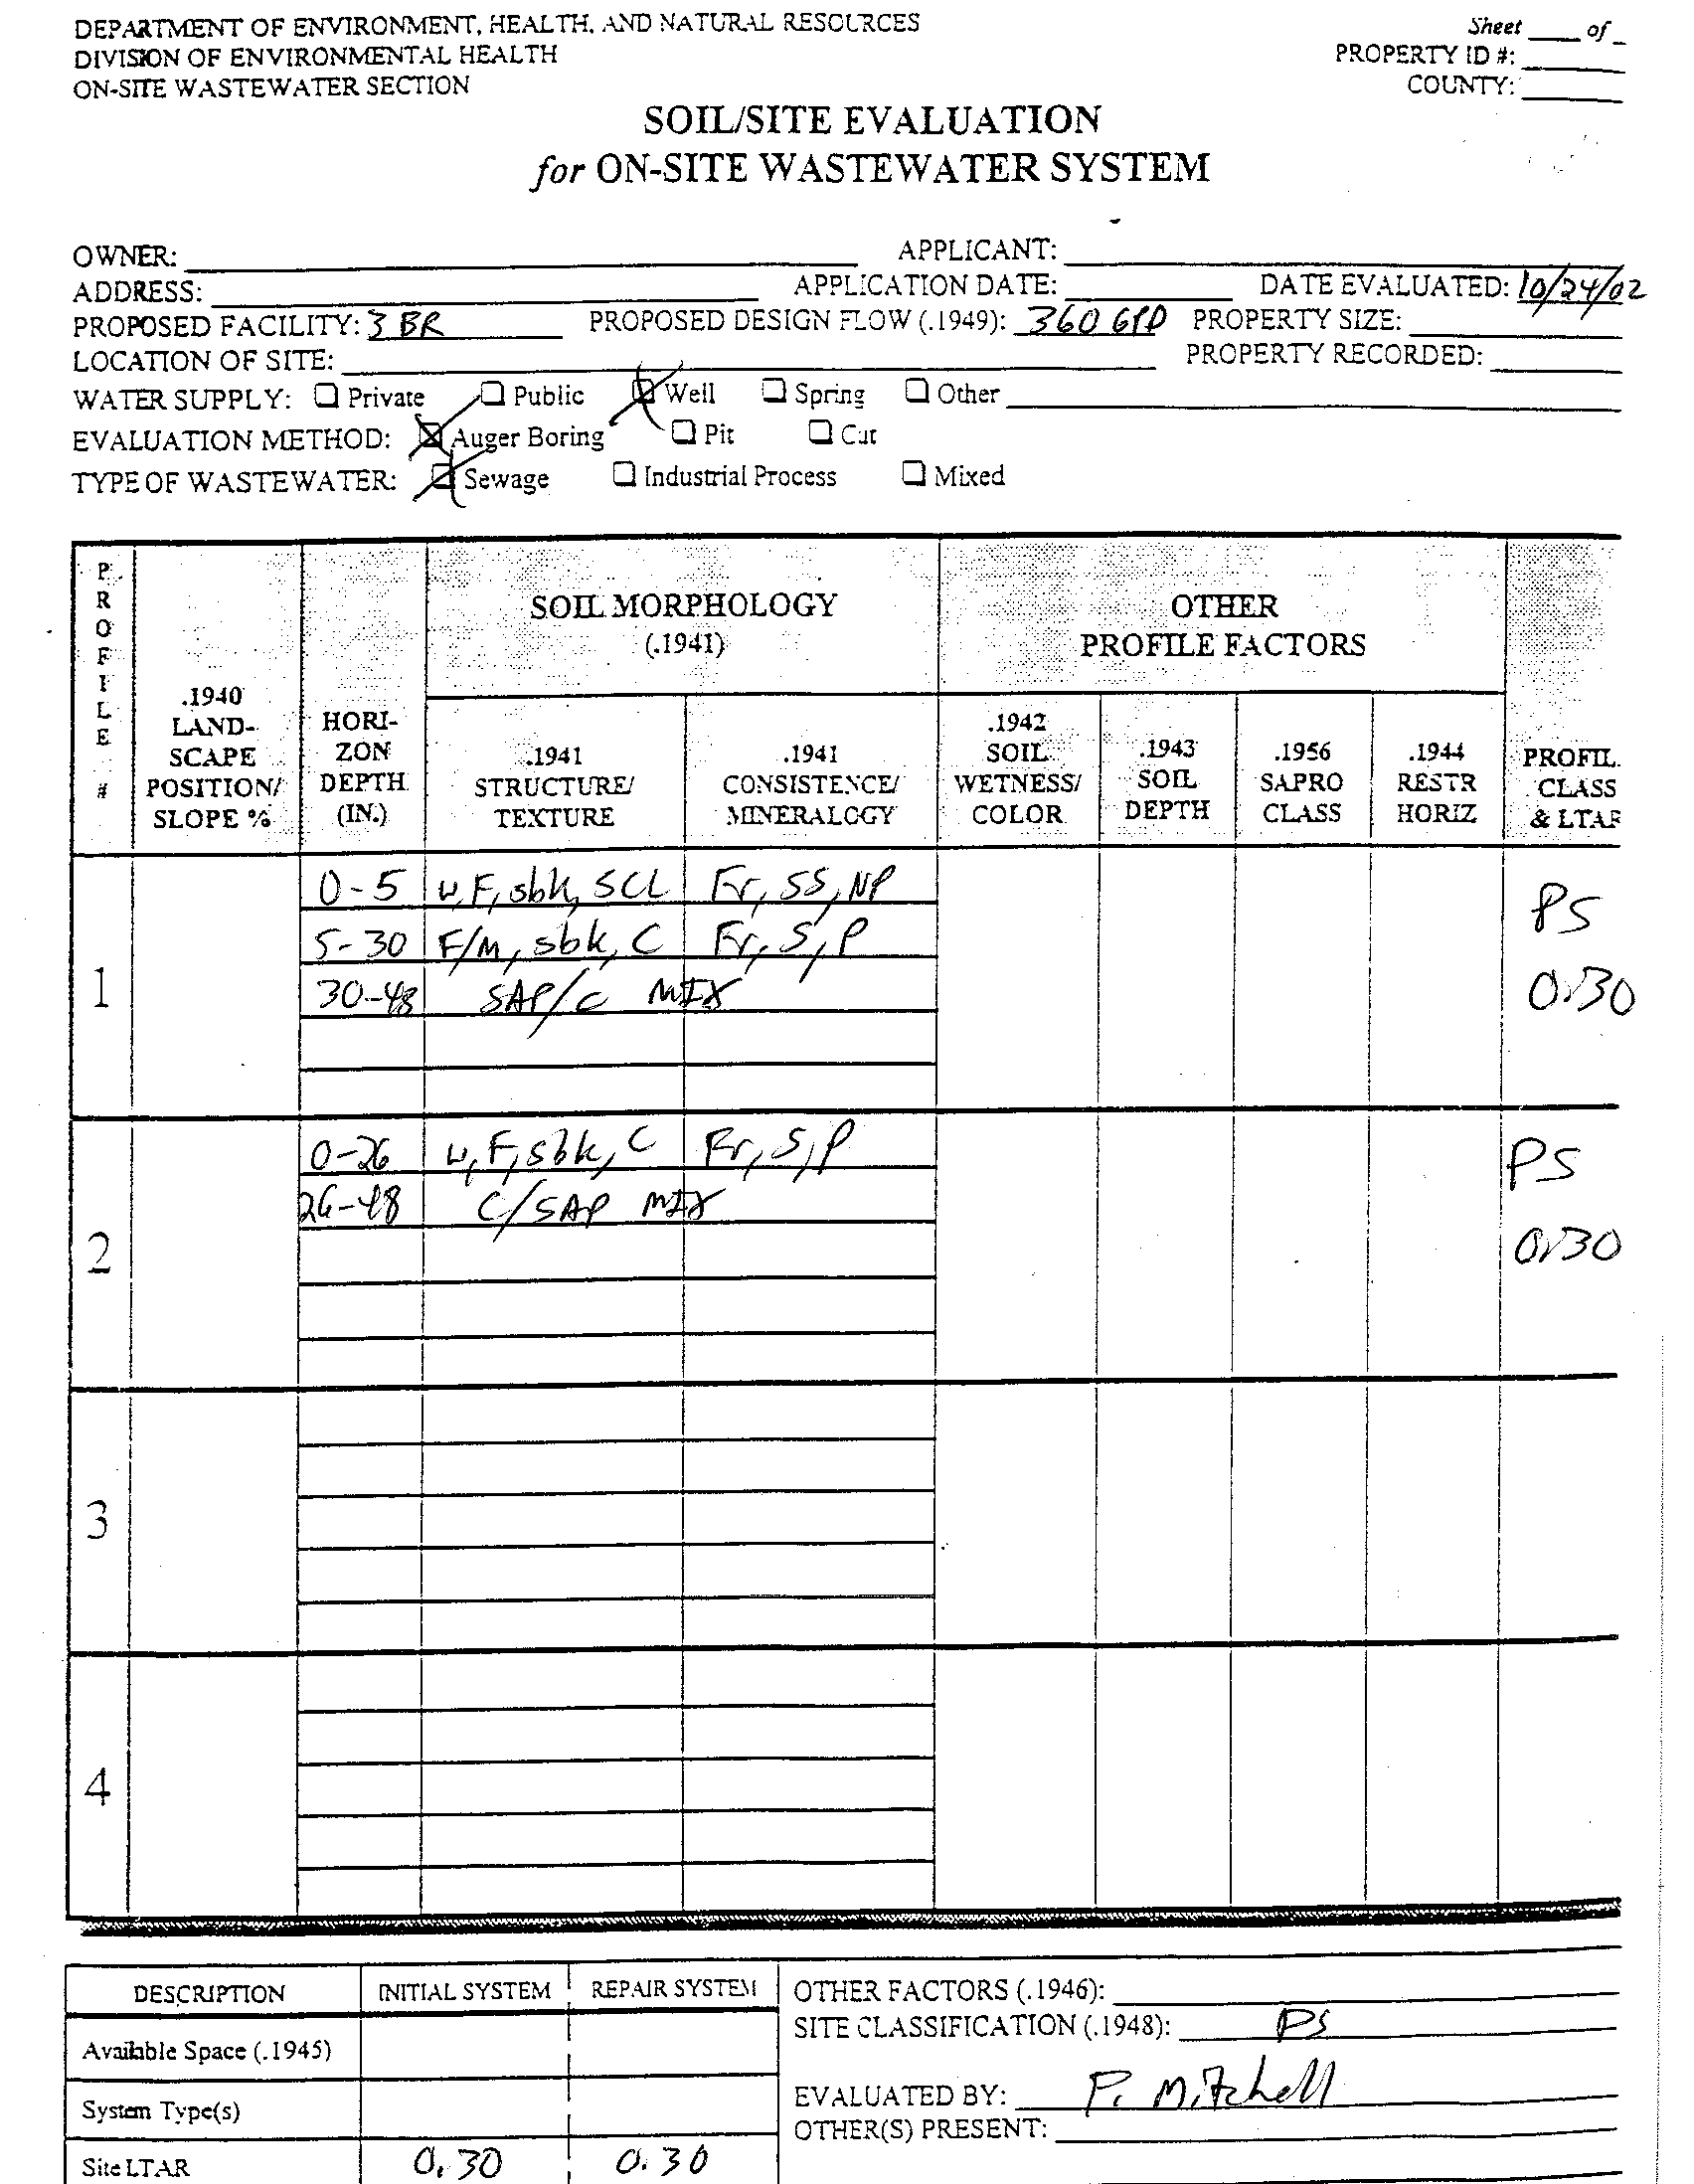 DEPARTMENT OF ENVIRONMENT, HEALTH, AND NATURAL RESOURCES
Sheet ____ of _
DIVISION OF ENVIRONMENTAL HEALTH
PROPERTY ID #:
ON-SITE WASTEWATER SECTION
COUNTY:
SOIL/SITE EVALUATION
for ON-SITE WASTEWATER SYSTEM
OWNER: APPLICANT:
ADDRESS: APPLICATION DATE: DATE EVALUATED: 10/24/02
PROPOSED FACILITY: 3 BR PROPOSED DESIGN FLOW (.1949): 360 GPD PROPERTY SIZE:
LOCATION OF SITE: PROPERTY RECORDED:
WATER SUPPLY: ☐ Private ☐ Public ☒ Well ☐ Spring ☐ Other
EVALUATION METHOD: ☒ Auger Boring ☐ Pit ☐ Cut
TYPE OF WASTEWATER: ☒ Sewage ☐ Industrial Process ☐ Mixed
PROFILE #
.1940 LAND-SCAPE POSITION/ SLOPE %
HORI-ZON DEPTH (IN.)
SOIL MORPHOLOGY (.1941)
.1941 STRUCTURE/ TEXTURE
.1941 CONSISTENCE/ MINERALOGY
OTHER PROFILE FACTORS
.1942 SOIL WETNESS/ COLOR
.1943 SOIL DEPTH
.1956 SAPRO CLASS
.1944 RESTR HORIZ
PROFIL. CLASS & LTAR
1
0-5 w, F, sbk, SCL Fr, SS, NP
5-30 F/M, sbk, C Fr, S, P
30-48 SAP/C MIX
PS
0.30
2
0-26 w, F, sbk, C Fr, S, P
26-48 C/SAP MIX
PS
0.30
3
4
DESCRIPTION INITIAL SYSTEM REPAIR SYSTEM
Available Space (.1945)
System Type(s)
Site LTAR 0.30 0.30
OTHER FACTORS (.1946):
SITE CLASSIFICATION (.1948): PS
EVALUATED BY: P. Mitchell
OTHER(S) PRESENT: